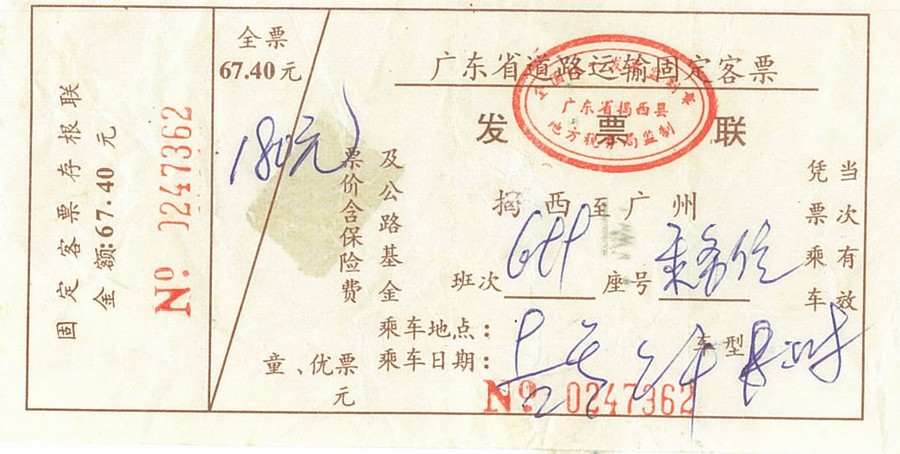 固定客票存根联
金额:67.40 元
№ 0247362
全票
67.40元
180元
票价含保险费
及公路基金
童、优票
元
广东省道路运输固定客票
广东省揭西县
地方税务局监制
发 票 联
揭 西 至 广 州
班次
座号
乘车地点:
车型
乘车日期:
№ 0247362
当次有效
凭票乘车